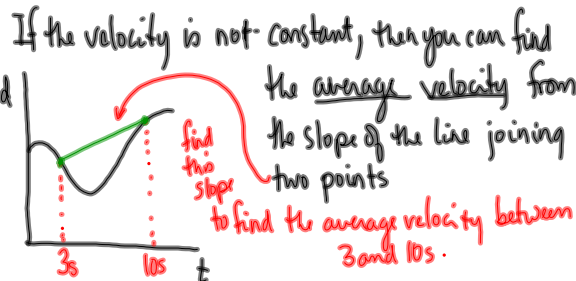 If the velocity is not constant, then you can find
the average velocity from
the slope of the line joining
two points
d
find
this
slope
to find the average velocity between
3 and 10s.
3s
10s
t